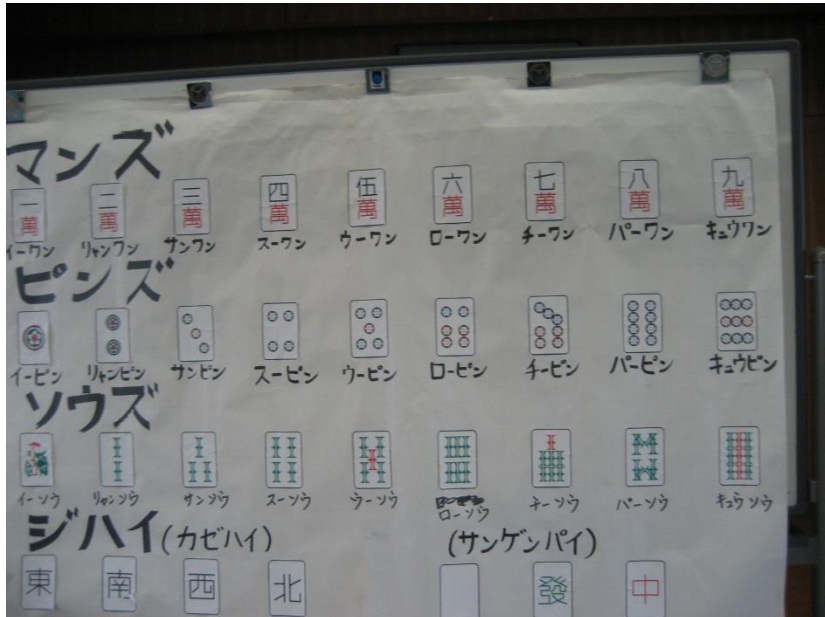 マンズ
一萬 二萬 三萬 四萬 伍萬 六萬 七萬 八萬 九萬
イーワン リャンワン サンワン スーワン ウーワン ローワン チーワン パーワン キュウワン
ピンズ
イーピン リャンピン サンピン スーピン ウーピン ローピン チーピン パーピン キュウピン
ソウズ
イーソウ リャンソウ サンソウ スーソウ ウーソウ ローソウ チーソウ パーソウ キュウソウ
ジハイ(カゼハイ) (サンゲンパイ)
東 南 西 北 發 中